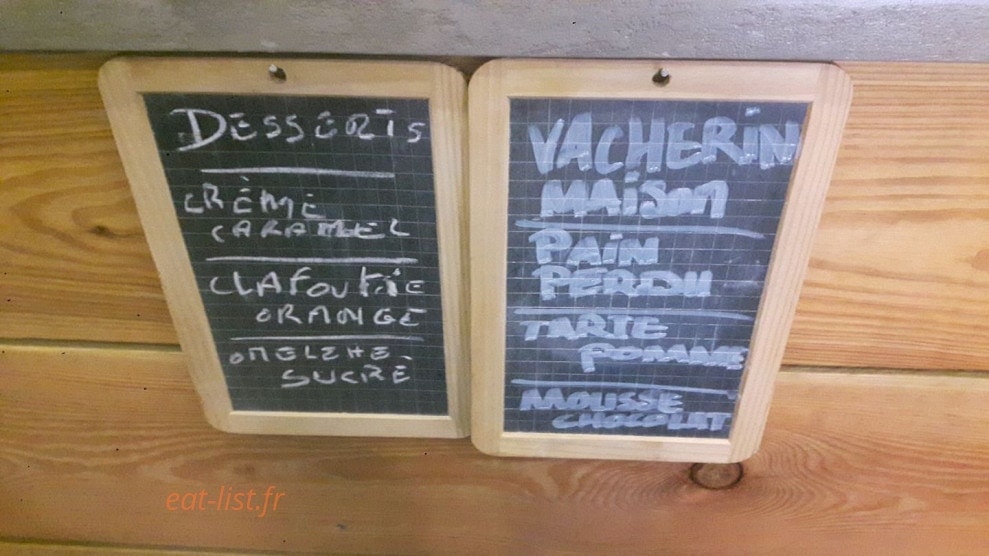 DESSERTS
CRÈME
CARAMEL
CLAFOUTIE
ORANGE
OMELETTE
SUCRÉ
VACHERIN
MAISON
PAIN
PERDU
TARTE
POMME
MOUSSE
CHOCOLAT
eat-list.fr